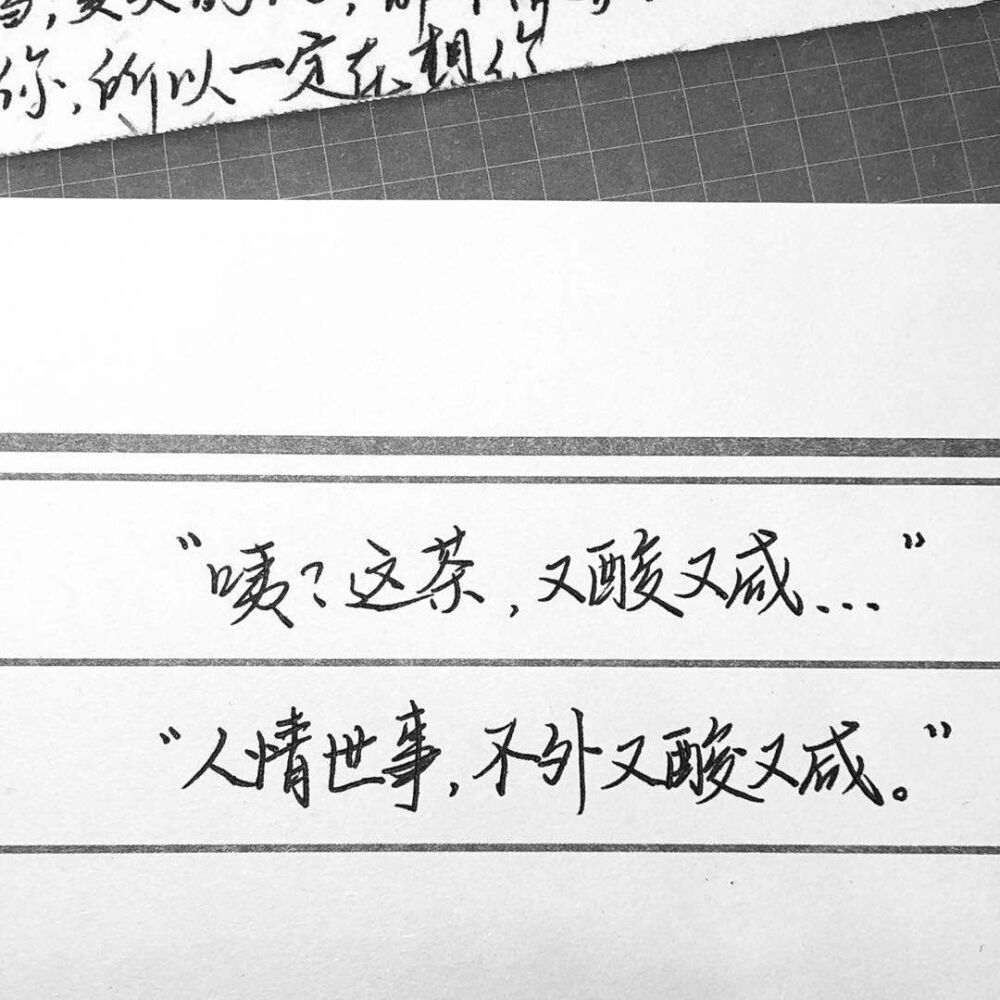 你,所以一定在想你
“咦?这茶,又酸又咸...”
“人情世事,不外又酸又咸。”